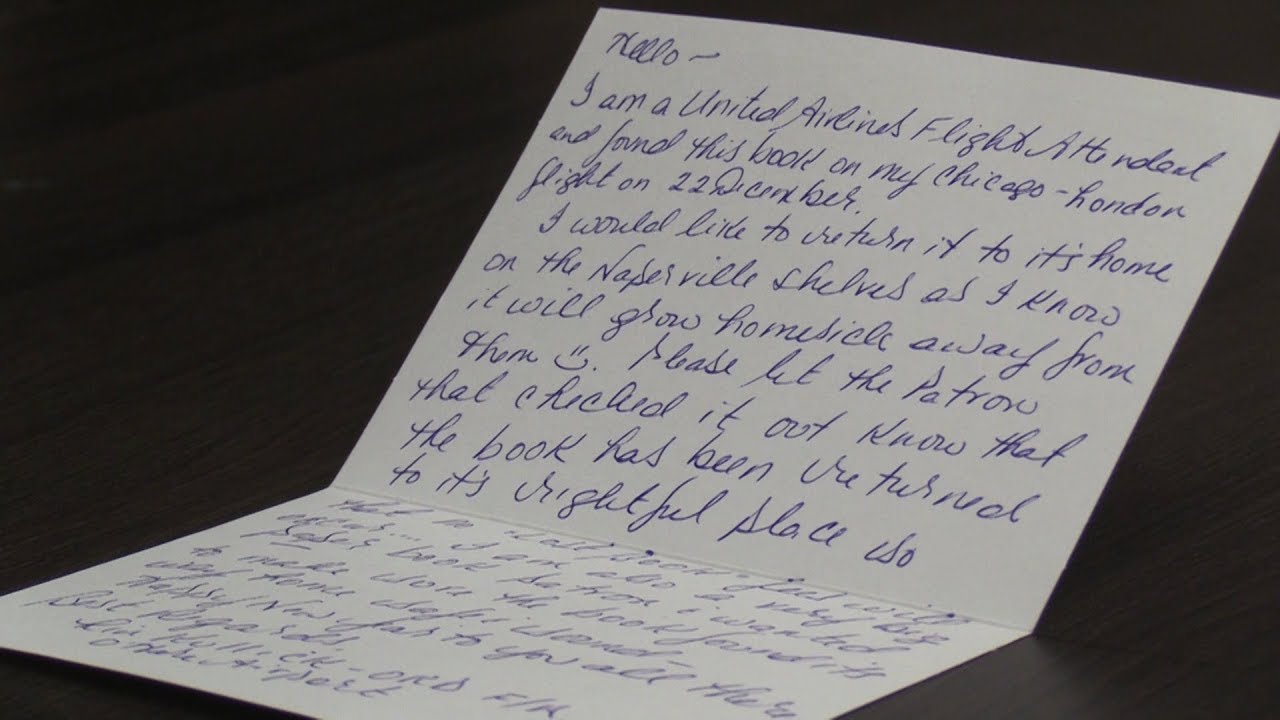 Hello ~
I am a United Airlines Flight Attendant
and found this book on my Chicago-London
flight on 22 December.
I would like to return it to it's home
on the Naperville shelves as I know
it will grow homesick away from
them :). Please let the Patron
that checked it out know that
the book has been returned
to it's rightful place so
that no book fees will
I am also a very big
book patron & wanted
to make sure the book found it's
way home safe & sound
Happy New Year to you all there
Best Regards
ORD F/A
O'Hare Airport